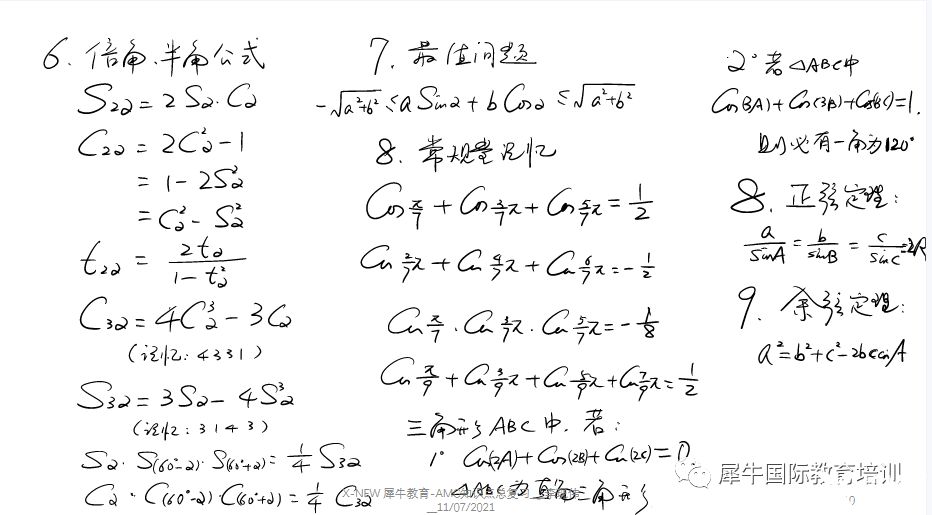 6、倍角、半角公式
S2α = 2Sα·Cα
C2α = 2C²α - 1
= 1 - 2S²α
= C²α - S²α
t2α = 2tα / (1 - t²α)
C3α = 4C³α - 3Cα
(记忆: 4331)
S3α = 3Sα - 4S³α
(记忆: 3143)
Sα·S(60°-α)·S(60°+α) = 1/4 S3α
Cα·C(60°-α)·C(60°+α) = 1/4 C3α
7、最值问题
-√(a²+b²) ≤ a Sinα + b Cosα ≤ √(a²+b²)
8、常规类记忆
Cos π/7 + Cos 3/7 π + Cos 5/7 π = 1/2
Cos 2/7 π + Cos 4/7 π + Cos 6/7 π = -1/2
Cos π/7 · Cos 3/7 π · Cos 5/7 π = -1/8
Cos π/9 + Cos 3/9 π + Cos 5/9 π + Cos 7/9 π = 1/2
三角形ABC中, 若:
1° Cos(2A) + Cos(2B) + Cos(2C) = 0
△ABC为直角三角形
2° 若△ABC中
Cos(3A) + Cos(3B) + Cos(3C) = 1.
则必有一角为120°
8、正弦定理:
a/sinA = b/sinB = c/sinC = 2R
9、余弦定理:
a² = b² + c² - 2bc cosA
犀牛国际教育培训
X-NEW 犀牛教育-AMC知识点总复习
_11/07/2021
9